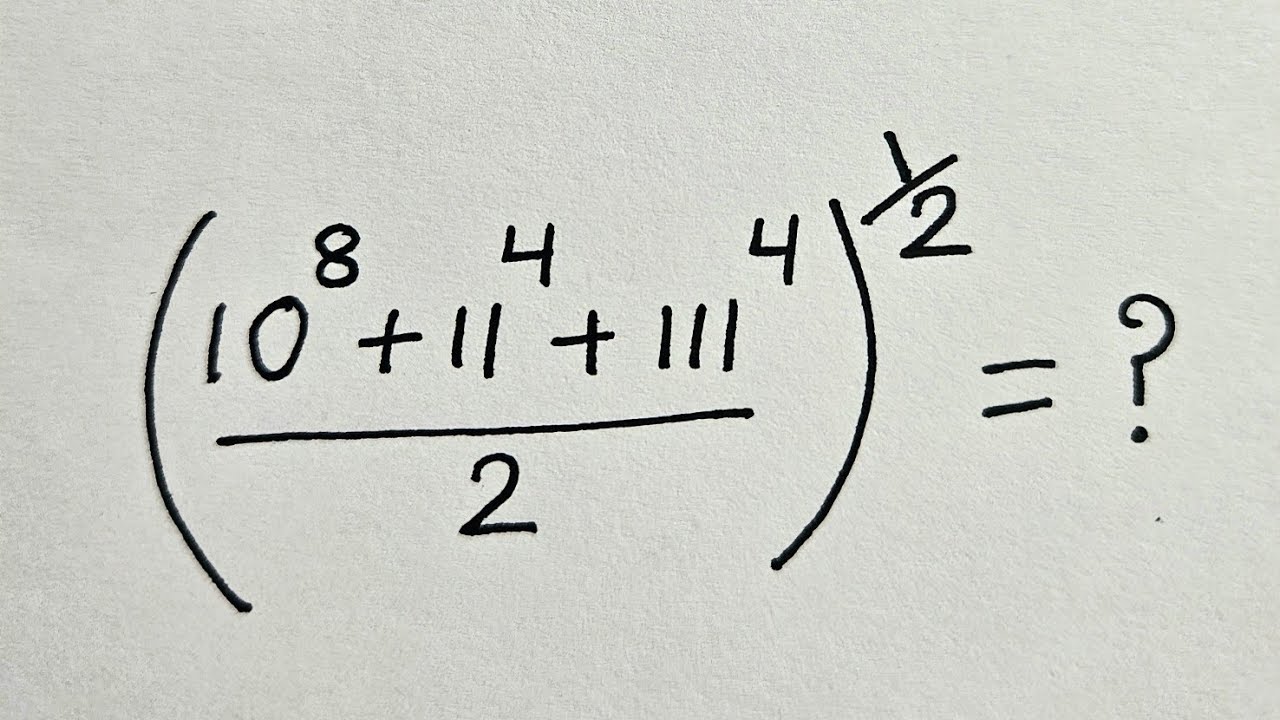 (10⁸+11⁴+111⁴/2)^1/2 = ?